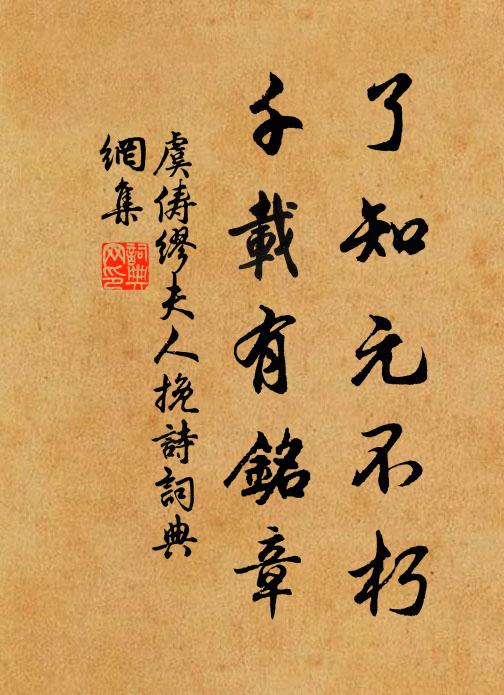 了知元不朽
千載有銘章
虞俦繆夫人挽詩詞典
網集
詞典
网印